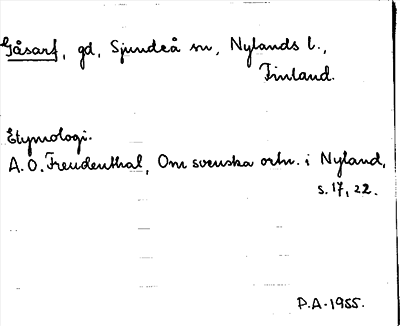 Gåsarf, gd, Sjundeå sn, Nylands l.,
Finland.
Etymologi.
A.O. Freudenthal, Om svenska ortn. i Nyland,
s. 17, 22.
P.A. 1955.